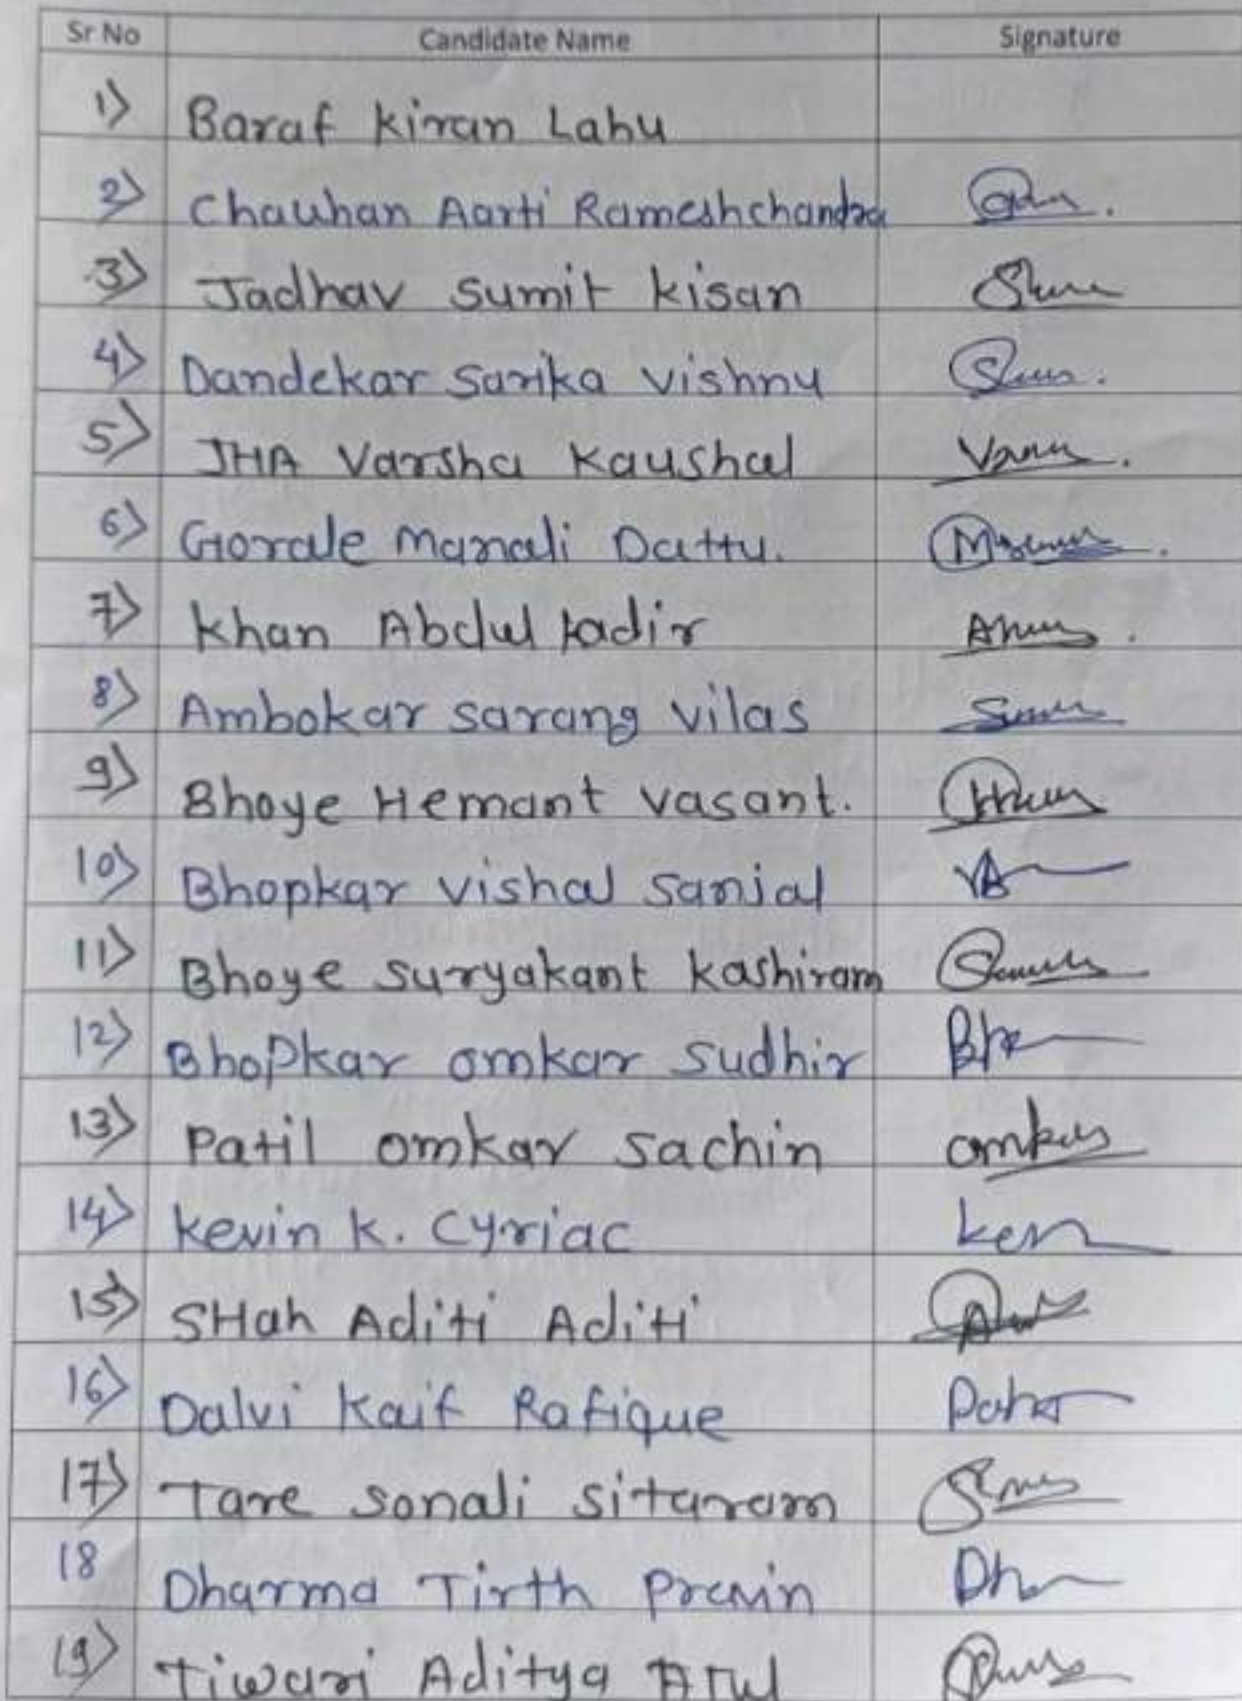 Sr No Candidate Name Signature
1) Baraf kiran Lahu
2) Chauhan Aarti Rameshchandra
3) Jadhav sumit kisan
4) Dandekar Sarika vishnu
5) JHA Varsha Kaushal
6) Gorale Manali Dattu.
7) khan Abdul kadir
8) Ambokar sarang vilas
9) Bhoye Hemant vasant.
10) Bhopkar vishal sanjal
11) Bhoye suryakant kashiram
12) Bhopkar omkar sudhir
13) Patil omkar sachin omkar
14) kevin k. Cyriac
15) SHah Aditi Aditi
16) Dalvi Kaif Rafique
17) Tare sonali sitaram
18 Dharma Tirth Pravin
19) Tiwari Aditya Atul